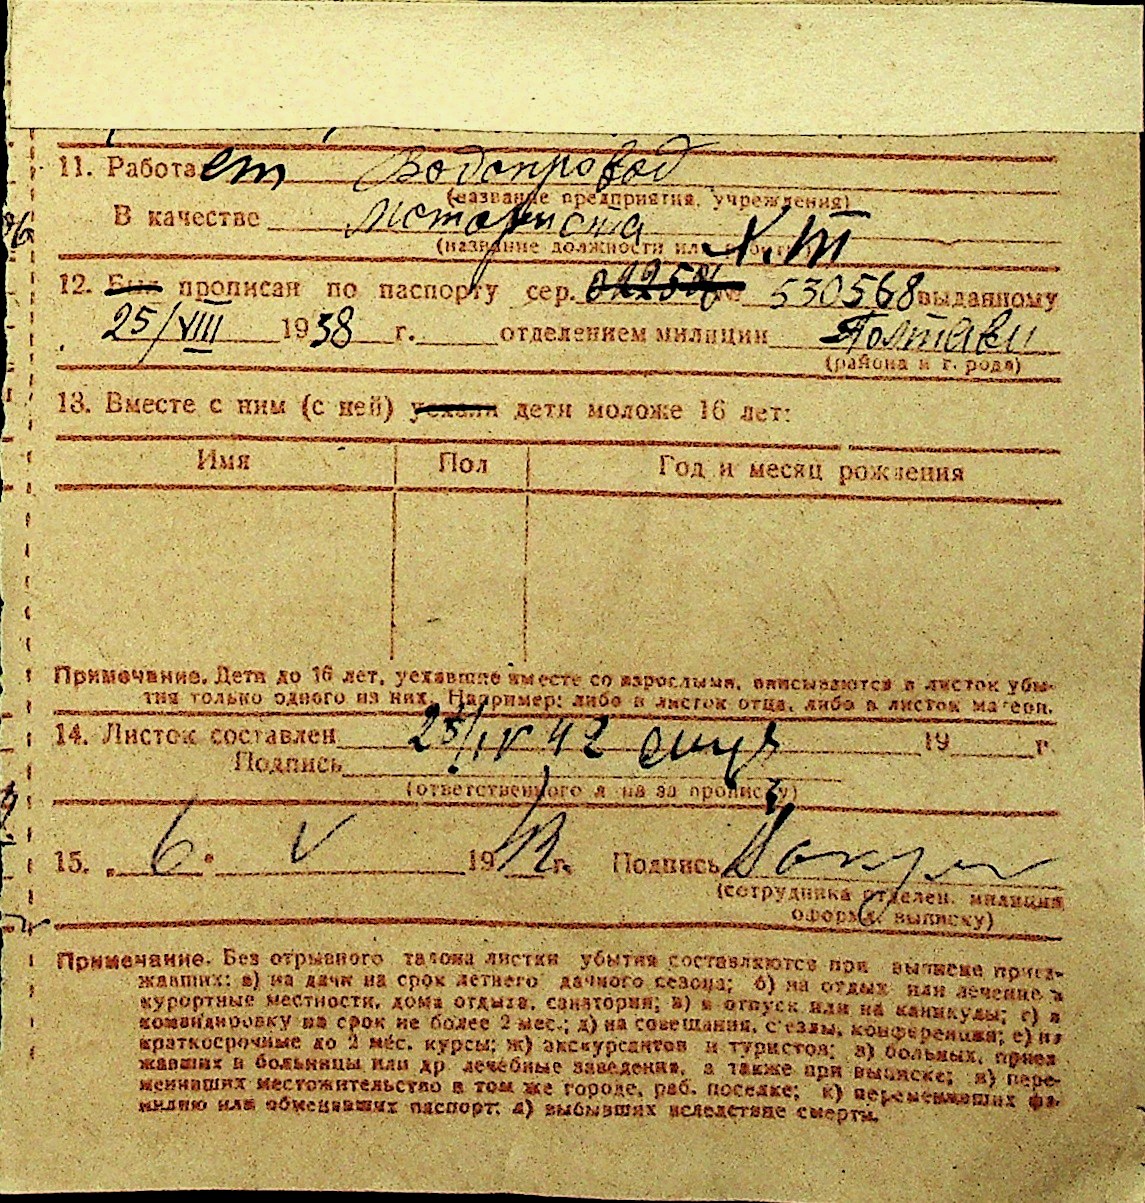 11. Работает Водопровод
(название предприятия, учреждения)
В качестве
(название должности или работы)
Х. ТП
12. Был прописан по паспорту сер. № 530568 выданному
25/VIII 1938 г. отделением милиции Полтави
(района и города)
13. Вместе с ним (с ней) уехали дети моложе 16 лет:
Имя Пол Год и месяц рождения
Примечание. Дети до 16 лет, уехавшие вместе со взрослыми, вписываются в листок убы-
тия только одного из них. Например: либо в листок отца, либо в листок матери.
14. Листок составлен 25/IV 42 19 г.
Подпись
(ответственного л на за прописку)
15. „ 6 " V 1942 г. Подпись
(сотрудника отделен. милиции
оформ. выписку)
Примечание. Без отрывного талона листки убытия составляются при выписке приез-
жавших: а) на дачи на срок летнего дачного сезона; б) на отдых или лечение в
курортные местности, дома отдыха, санатории; в) в отпуск или на каникулы; г) в
командировку на срок не более 2 мес.; д) на совещания, с'езды, конференции; е) на
краткосрочные до 2 мес. курсы; ж) экскурсантов и туристов; з) больных, приез-
жавших в больницы или др лечебные заведения, а также при выписке; и) пере-
менивших местожительство в том же городе, раб. поселке; к) переменивших фа-
милию или обменявших паспорт; л) выбывших вследствие смерти.